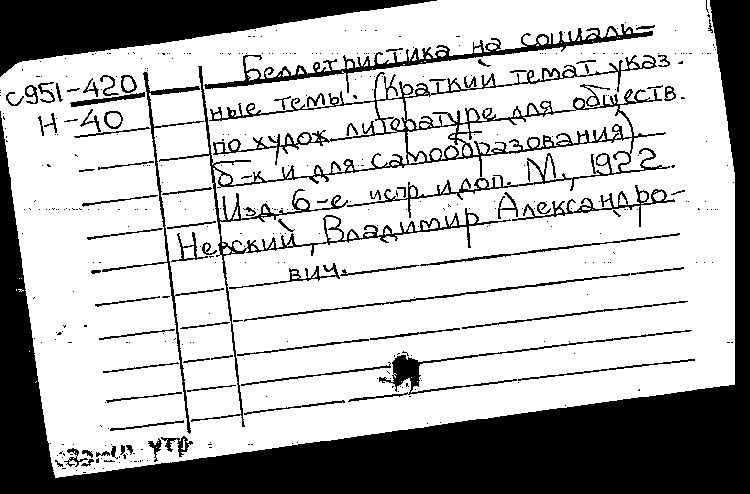 Беллетристика на социаль-
с951-420
ные темы. (Краткий темат. указ.
Н-40
по худож. литературе для обществ.
б-к и для самообразования)
Изд. 6-е испр. и доп. М., 1922.
Невский, Владимир Александро-
вич.
утр